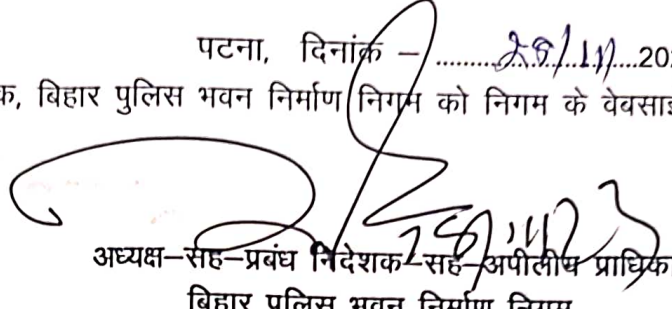 पटना, दिनांक – ...........28/11/....20
क, बिहार पुलिस भवन निर्माण निगम को निगम के वेबसाइ
28/11/23
अध्यक्ष–सह–प्रबंध निदेशक–सह–अपीलीय प्राधिक
बिहार पुलिस भवन निर्माण निगम